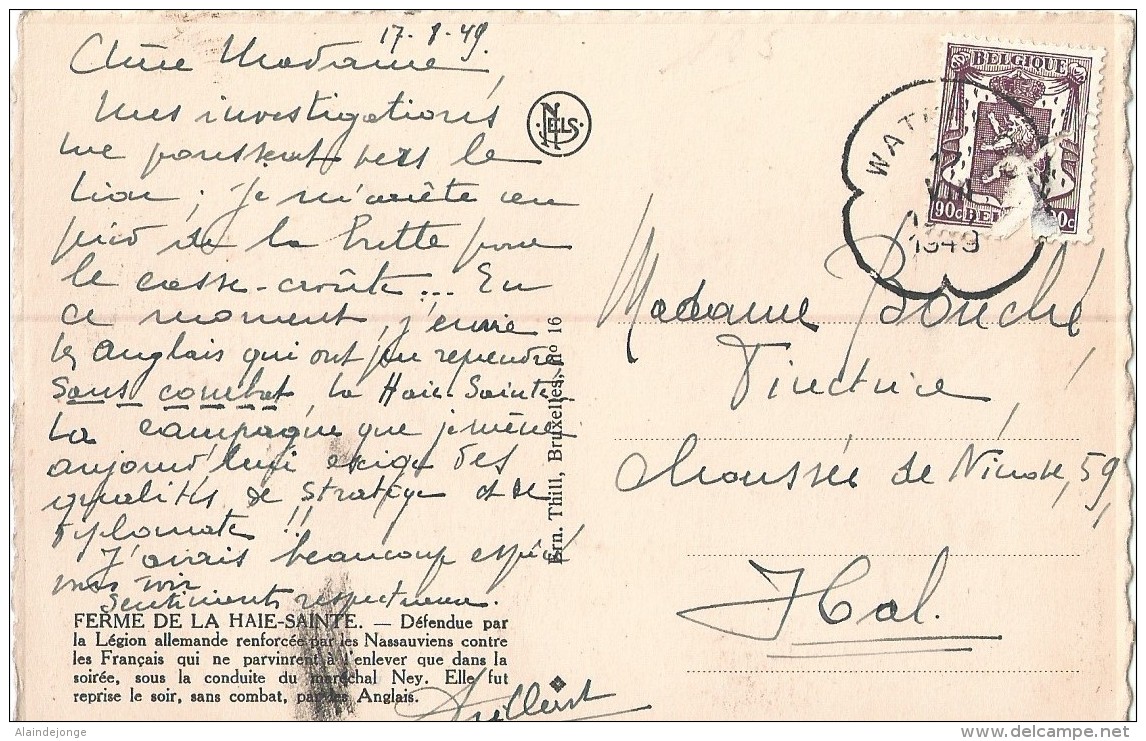 17-8-49
Chère Madame,
Mes investigations
me poussent vers le
Lion ; je m'arrête au
pied de la butte pour
le casse-croûte... En
ce moment, j'envie
les Anglais qui ont pu reprendre
sans combat, la Haie Sainte,
La campagne que je mène
aujourd'hui exige des
qualités de stratège et de
diplomate !!
J'avais beaucoup espéré
vous voir
Sentiments respectueux.
FERME DE LA HAIE-SAINTE. — Défendue par
la Légion allemande renforcée par les Nassauviens contre
les Français qui ne parvinrent à l'enlever que dans la
soirée, sous la conduite du maréchal Ney. Elle fut
reprise le soir, sans combat, par les Anglais.
NELS
Ern. Thill, Bruxelles, no 16
BELGIQUE
90c BE 0c
WAT
17
1949
Madame Bouché
Directrice
Chaussée de Ninove, 59,
Hal.
Alaindejonge
www.delcampe.net